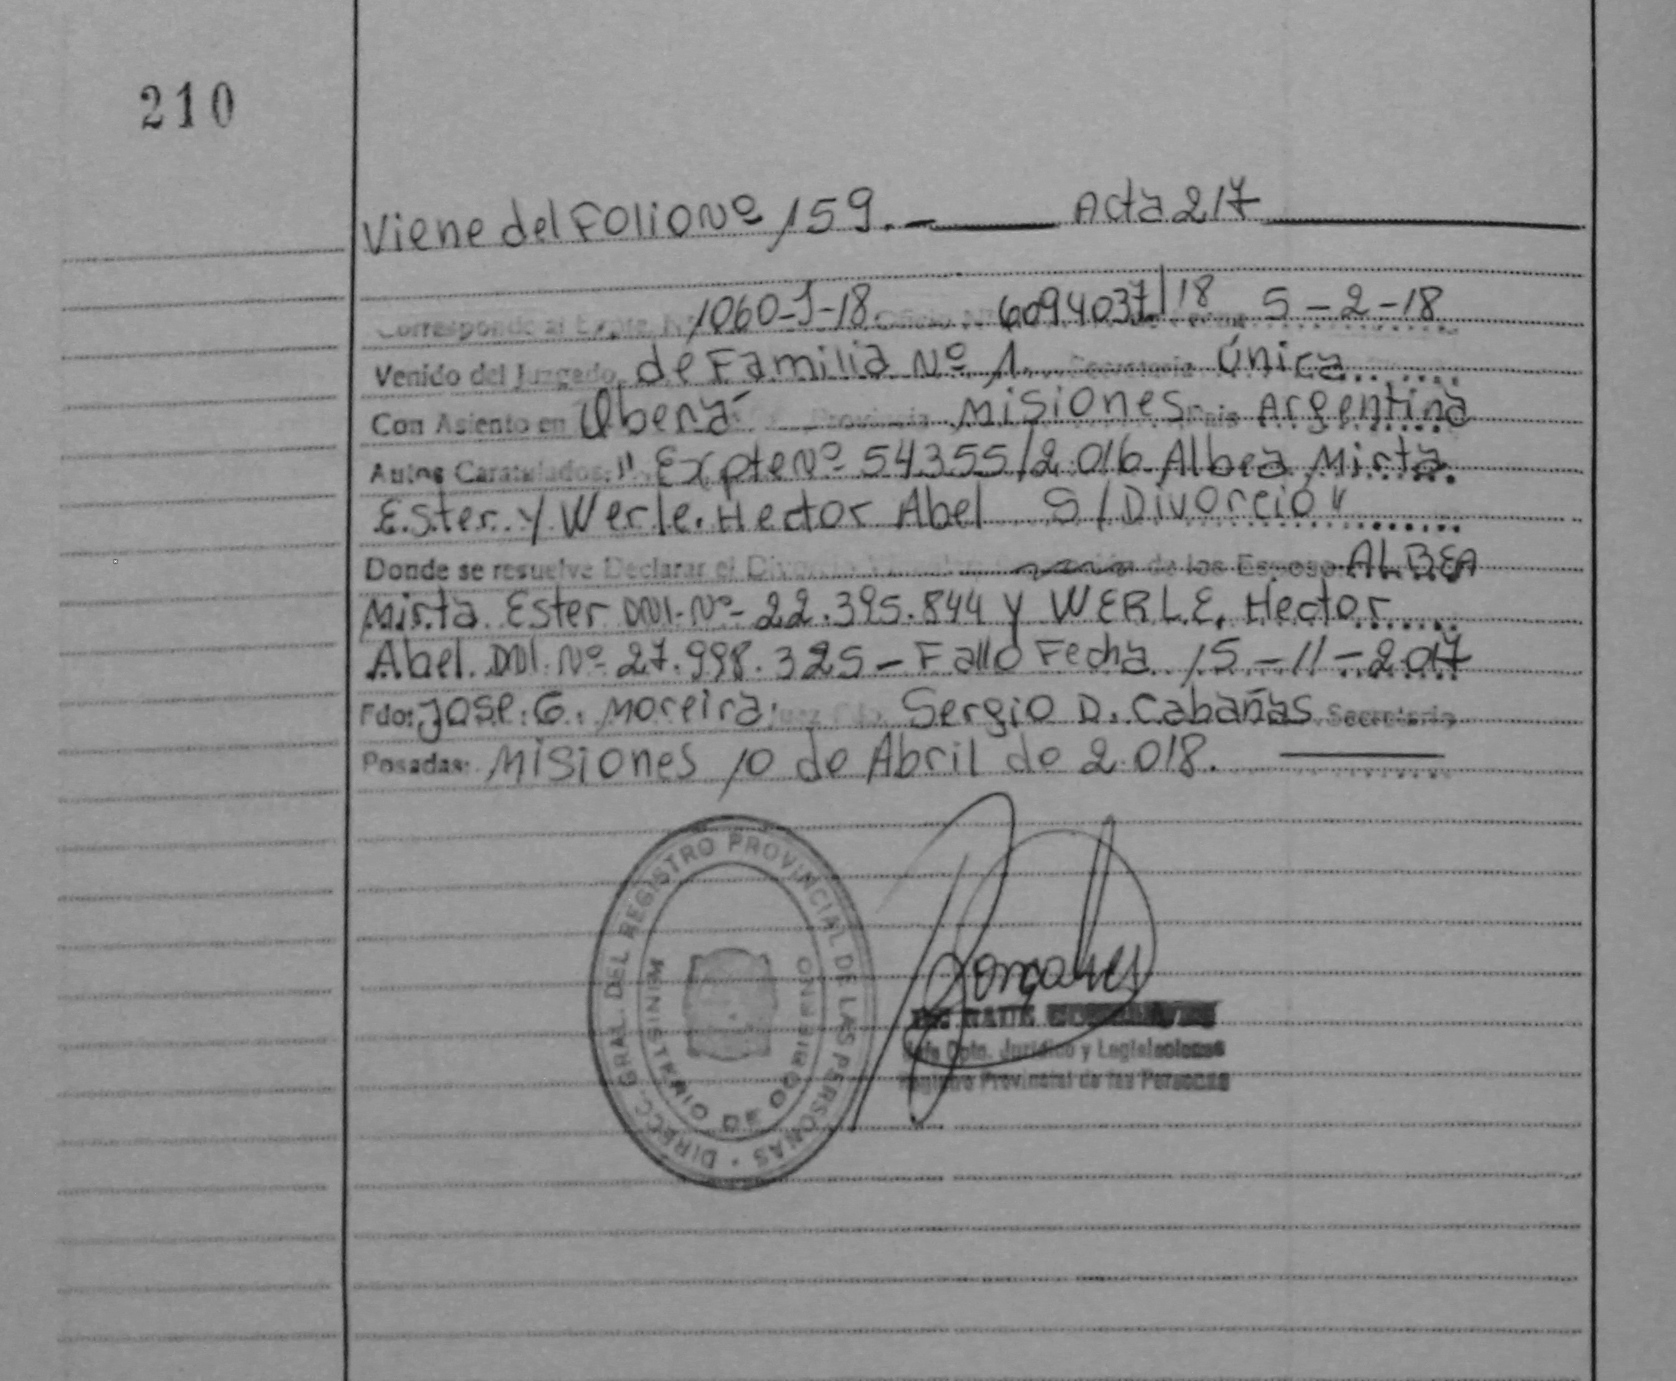 210
Viene del Folio Nº 159.- Acta 217
Corresponde al Expte. Nº 1060-J-18. Oficio Nº 6094037/18 5-2-18
Venido del Juzgado de Familia Nº 1. Secretaría Única
Con Asiento en Oberá Provincia Misiones País Argentina
Autos Caratulados: " Expte Nº 54355/2.016 Albea Mirta
Ester y Werle. Hector Abel S/Divorcio "
Donde se resuelve Declarar el Divorcio Vincular de los Esposos ALBEA
Mirta Ester DNI. Nº- 22.395.844 y WERLE, Hector
Abel. DNI. Nº 27.998.325- Fallo Fecha 15-11-2017
Fdo: Jose. G. Moreira. Juez Fdo. Sergio D. Cabañas Secretario
Posadas: Misiones 10 de Abril de 2.018.
DIRECC. GRAL. DEL REGISTRO PROVINCIAL DE LAS PERSONAS
MINISTERIO DE GOBIERNO
Jefe Dpto. Jurídico y Legislaciones
Registro Provincial de las Personas